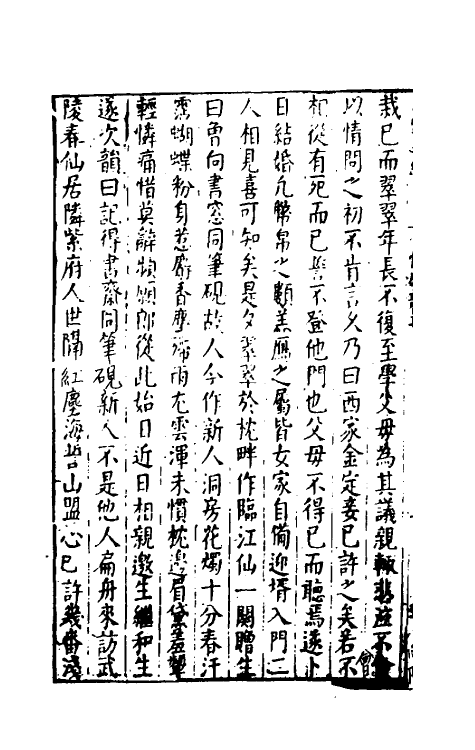 栽已而翠翠年長不復至學父母為其議親輒悲泣不食
以情問之初不肯言久乃曰西家金定妾已許之矣若不
相從有死而已誓不登他門也父母不得已而聽焉遂卜
日結婚凡幣帛之類羔鴈之屬皆女家自備迎壻入門二
人相見喜可知矣是夕翠翠於枕畔作臨江仙一闋贈生
曰曾向書窓同筆硯故人今作新人洞房花燭十分春汗
霑蝴蝶粉身惹麝香塵殢雨尤雲渾未慣枕邊眉黛羞顰
輕憐痛惜莫辭頻願郎從此始日近日相親邀生繼和生
遂次韻曰記得書齋同筆硯新人不是他人扁舟來訪武
陵春仙居隣紫府人世隔紅塵海誓山盟心已許幾番淺